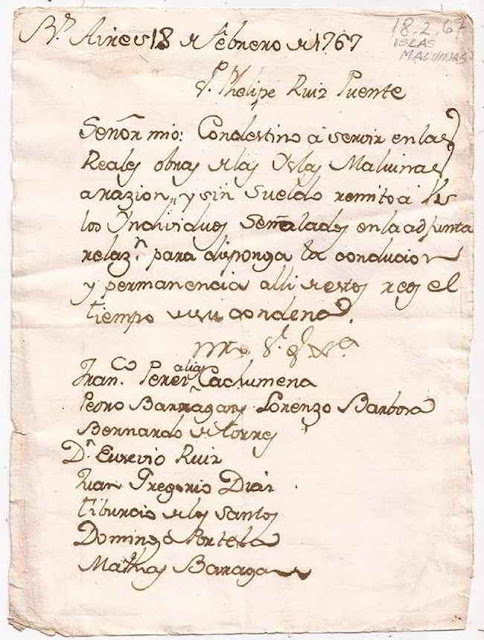 Bs Aires 18 de Febrero de 1767
18.2.67
ISLAS
MALVINAS
Sr Phelipe Ruiz Puente
Señor mio: Con destino a servir en las
Reales obras de las Yslas Malvinas
a razion, y sin sueldo remito a
los Yndividuos Señalados en la adjunta
relazn para disponga la conducion
y permanencia alli de estos reos el
tiempo de su condena.
Franco Perez alias Cachumena
Pedro Barragan Lorenzo Barbosa
Bernardo de torres
Dn Eusevio Ruiz
Juan Gregorio Diaz
tiburcio de los Santos
Domingo Portela
Mathias Barragan